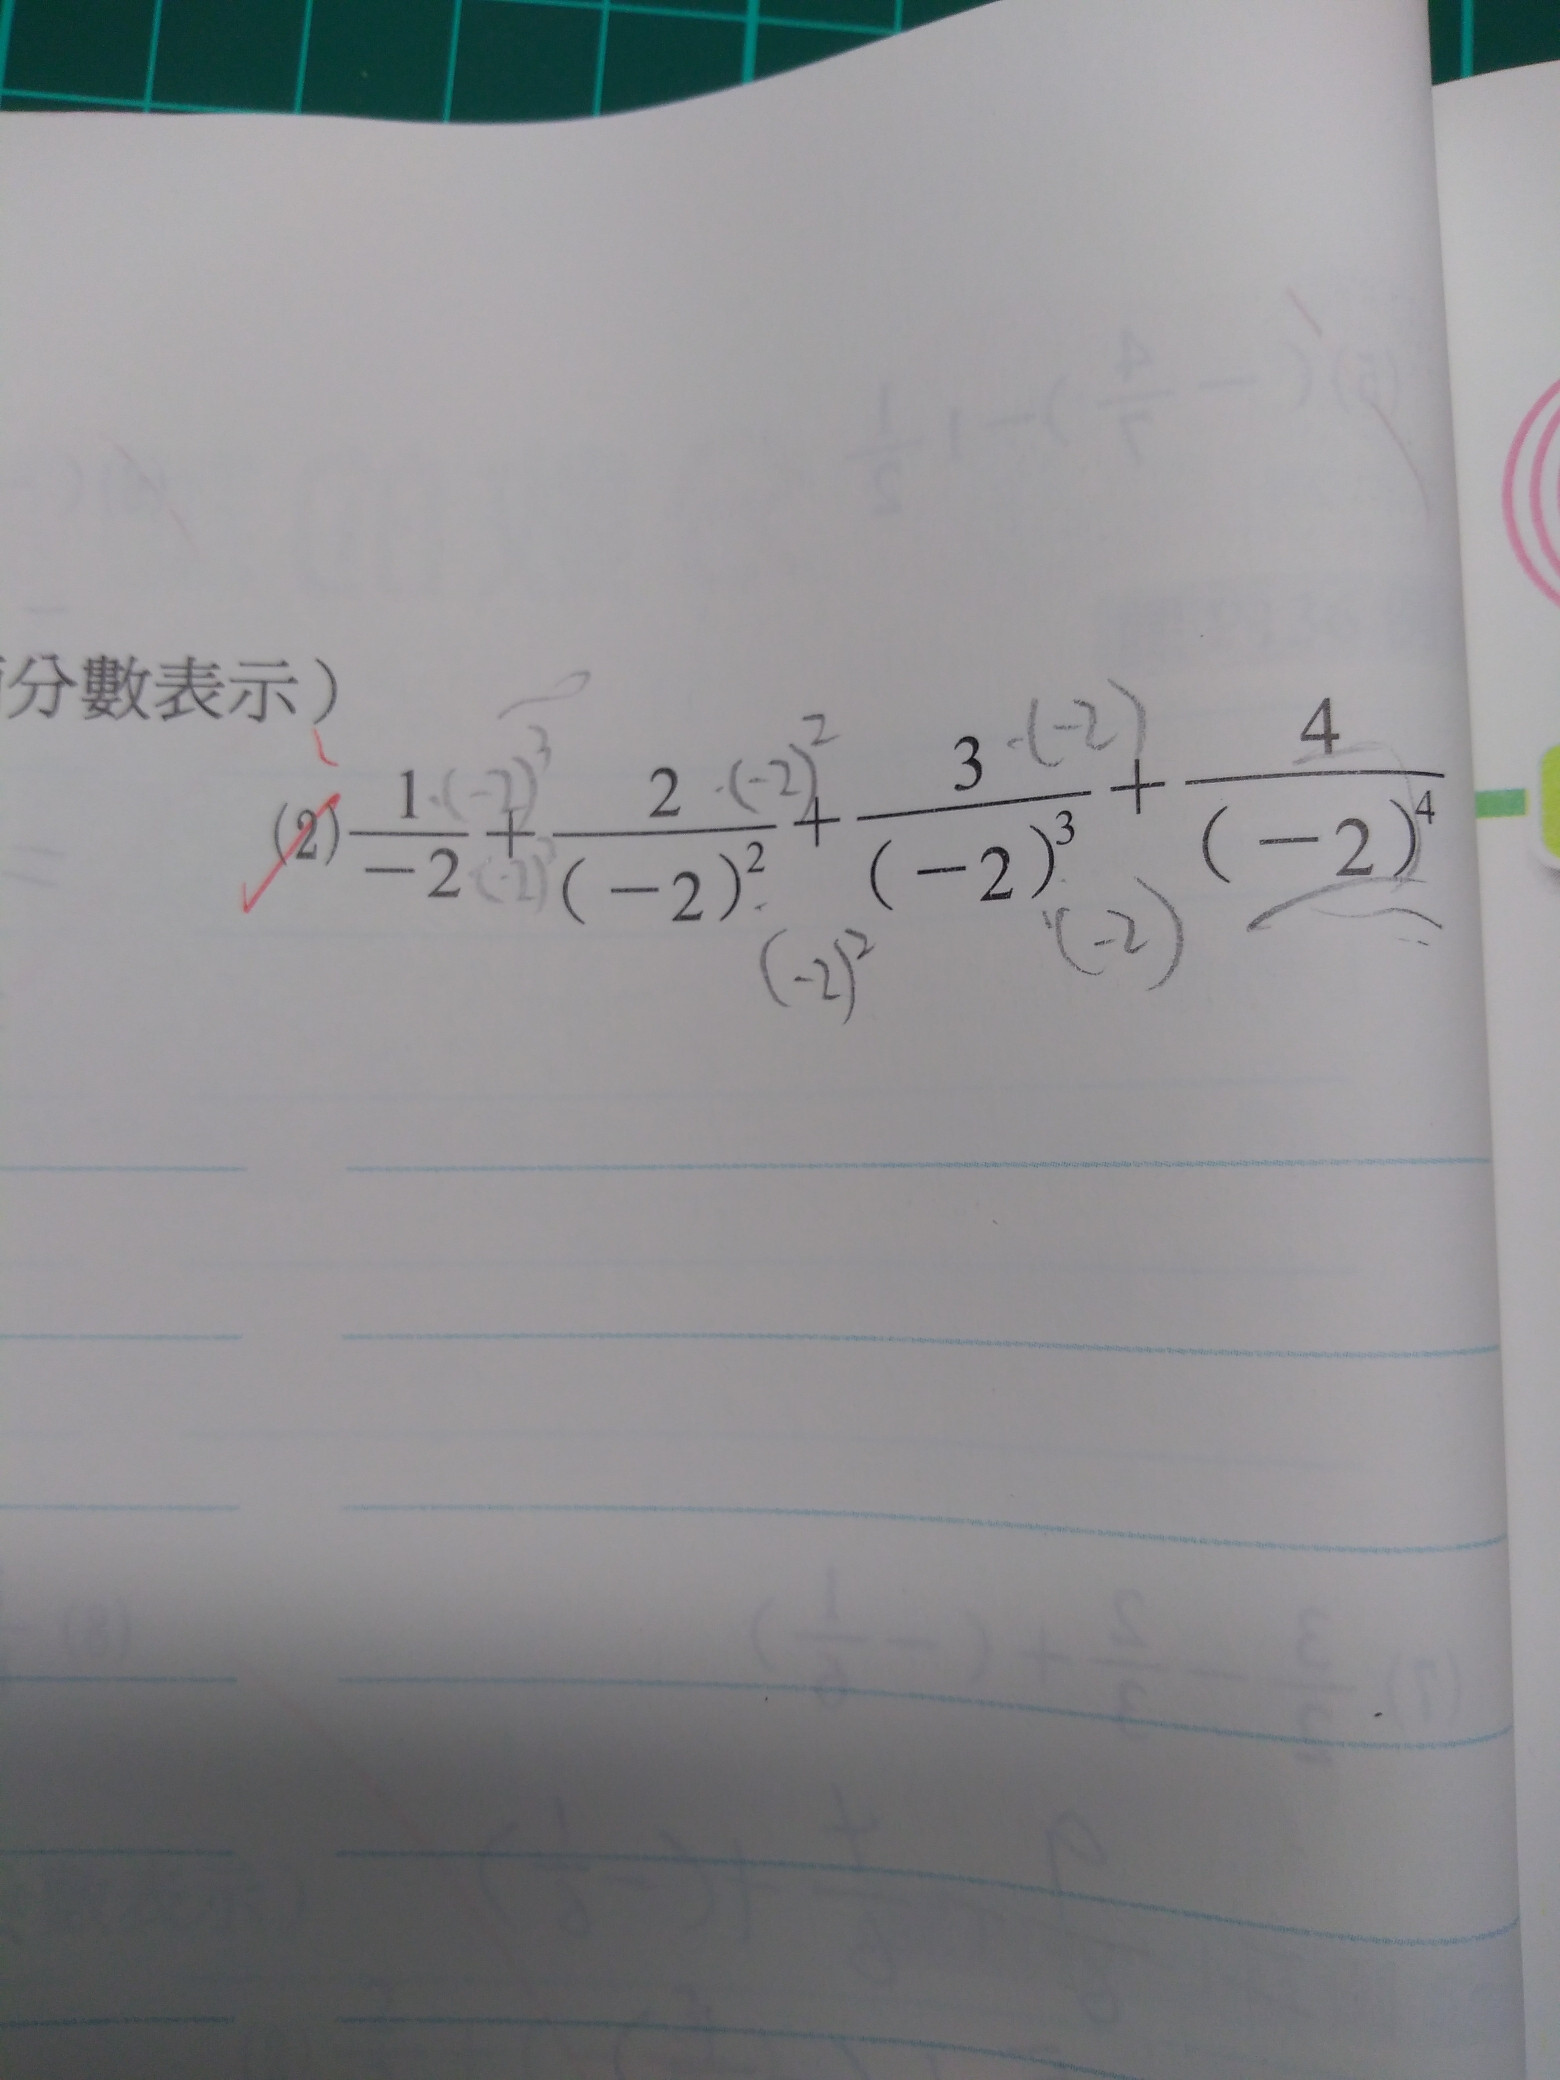 分數表示）
(2) \frac{1·(-2)^3}{-2·(-2)^3} + \frac{2·(-2)^2}{(-2)^2·(-2)^2} + \frac{3·(-2)}{(-2)^3·(-2)} + \frac{4}{(-2)^4}